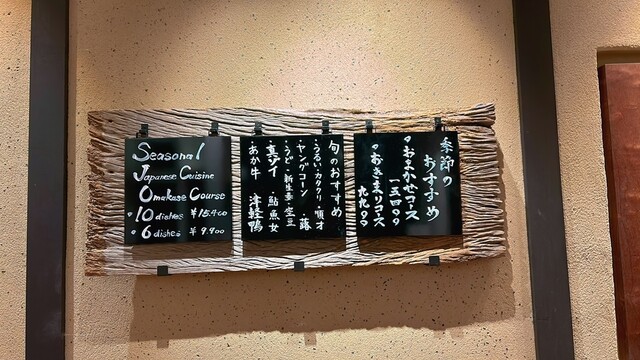 Seasonal
Japanese Cuisine
Omakase Course
・10 dishes ¥15.400
・6 dishes ¥9.900
季節の
おすすめ
・おまかせコース
一五四〇〇
・おきまりコース
九九〇〇
旬のおすすめ
・うるい・カタクリ・
・ヤングコーン ・蕗
・うど・新生姜・空豆
・真ゾイ ・鮎魚女
・あか牛 ・津軽鴨